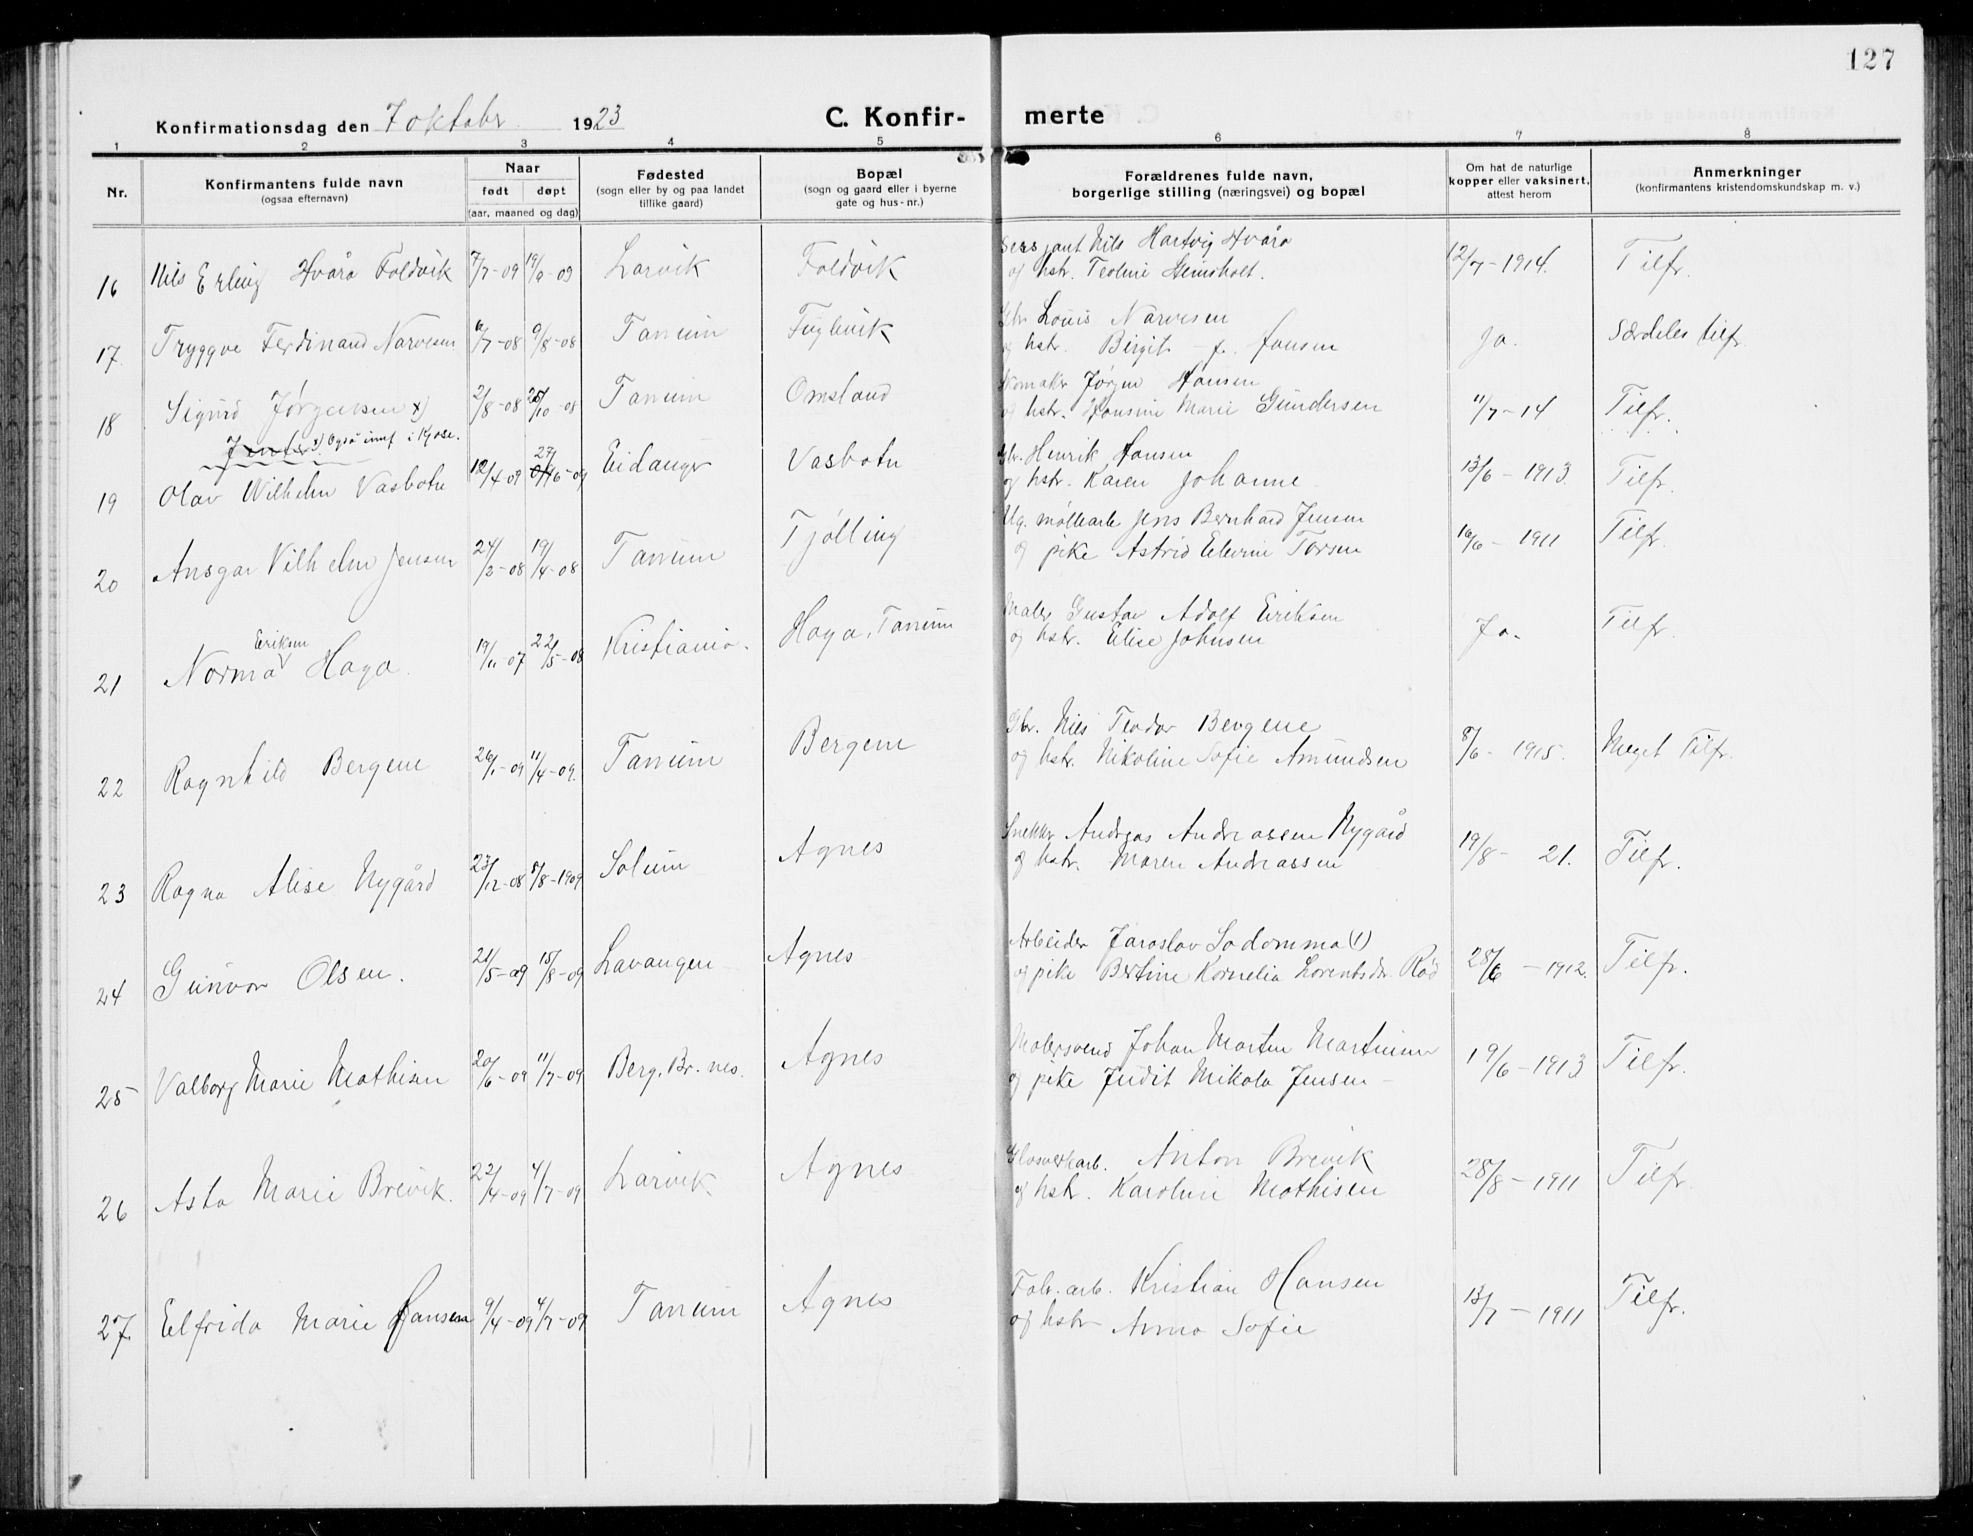 127
Konfirmationsdag den 7 oktobr 1923 C. Konfir- merte
1 2 3 4 5 6 7 8
Nr.
Konfirmantens fulde navn
(ogsaa efternavn)
Naar
født døpt
(aar, maaned og dag)
Fødested
(sogn eller by og paa landet
tillike gaard)
Bopæl
(sogn og gaard eller i byerne
gate og hus-nr.)
Forældrenes fulde navn,
borgerlige stilling (næringsvei) og bopæl
Om hat de naturlige
kopper eller vaksinert,
attest herom
Anmerkninger
(konfirmantens kristendomskundskap m. v.)
16 Nils Erling Hvåra Foldvik 7/7-09 19/9-09 Larvik Foldvik Sersjant Nils Hartvig Hvåra 12/7-1914. Tilfr.
og hstr. Teoline Grimsholt.
17. Tryggve Ferdinand Narvesen 6/7-08 9/8-08 Tanum Fuglevik Gbr. Louis Narvesen Ja. Særdeles tilfr.
og hstr. Birgit f. Jansen
18 Sigurd Jørgensen x) 2/8-08 25/10-08 Tanum Omsland Skomaker Jørgen Hansen 11/7-14 Tilfr.
og hstr. Hansine Marie Gundersen
x) Også innf i Kjose.
19 Olav Wilhelm Vasbotn 12/4-09 27/6-09 Eidanger Vasbotn Gbr. Henrik Hansen 13/6-1913. Tilfr.
og hstr. Karen Johanne
20 Ansgar Vilhelm Jensen 24/2-08 19/4-08 Tanum Tjølling Ug. møllearb Jens Bernhard Jensen 16/6-1911 Tilfr.
og pike Astrid Elevine Torsen
21 Norma Eriksen Haga. 19/11-07 22/5-08 Kristiania. Haga, Tanum Maler Gustav Adolf Eriksen Ja. Tilfr.
og hstr. Elise Johnsen
22 Ragnhild Bergene 26/1-09 11/4-09. Tanum Bergene Gbr. Nils Teodor Bergene 8/6-1915. Meget Tilfr.
og hstr. Nikoline Sofie Amundsen
23 Ragna Alise Nygård 23/12-08 8/8-1909 Solum Agnes Snekker Andreas Andreassen Nygård 19/8-21. Tilfr.
og hstr. Maren Andreassen
24 Gunvor Olsen. 21/5-09 15/8-09 Lavangen Agnes Arbeider Jaroslav Sodomma (!) 28/6-1912. Tilfr.
og pike Bertine Kornelia Lorentsdtr Rød
25 Valborg Marie Mathisen 20/6-09 11/7-09 Berg, Br.nes. Agnes Malersvend Johan Martin Martinsen 19/6-1913 Tilfr.
og pike Judit Mikala Jensen
26 Asta Marie Brevik. 22/4-09 4/7-09 Larvik Agnes Glasverkarb. Anton Brevik 28/8-1911 Tilfr.
og hstr. Karoline Mathisen
27. Elfrida Marie Hansen 9/4-09 4/7-09 Tanum Agnes Fabr.arb. Kristian Hansen 13/7-1911 Tilfr.
og hstr Anna Sofie